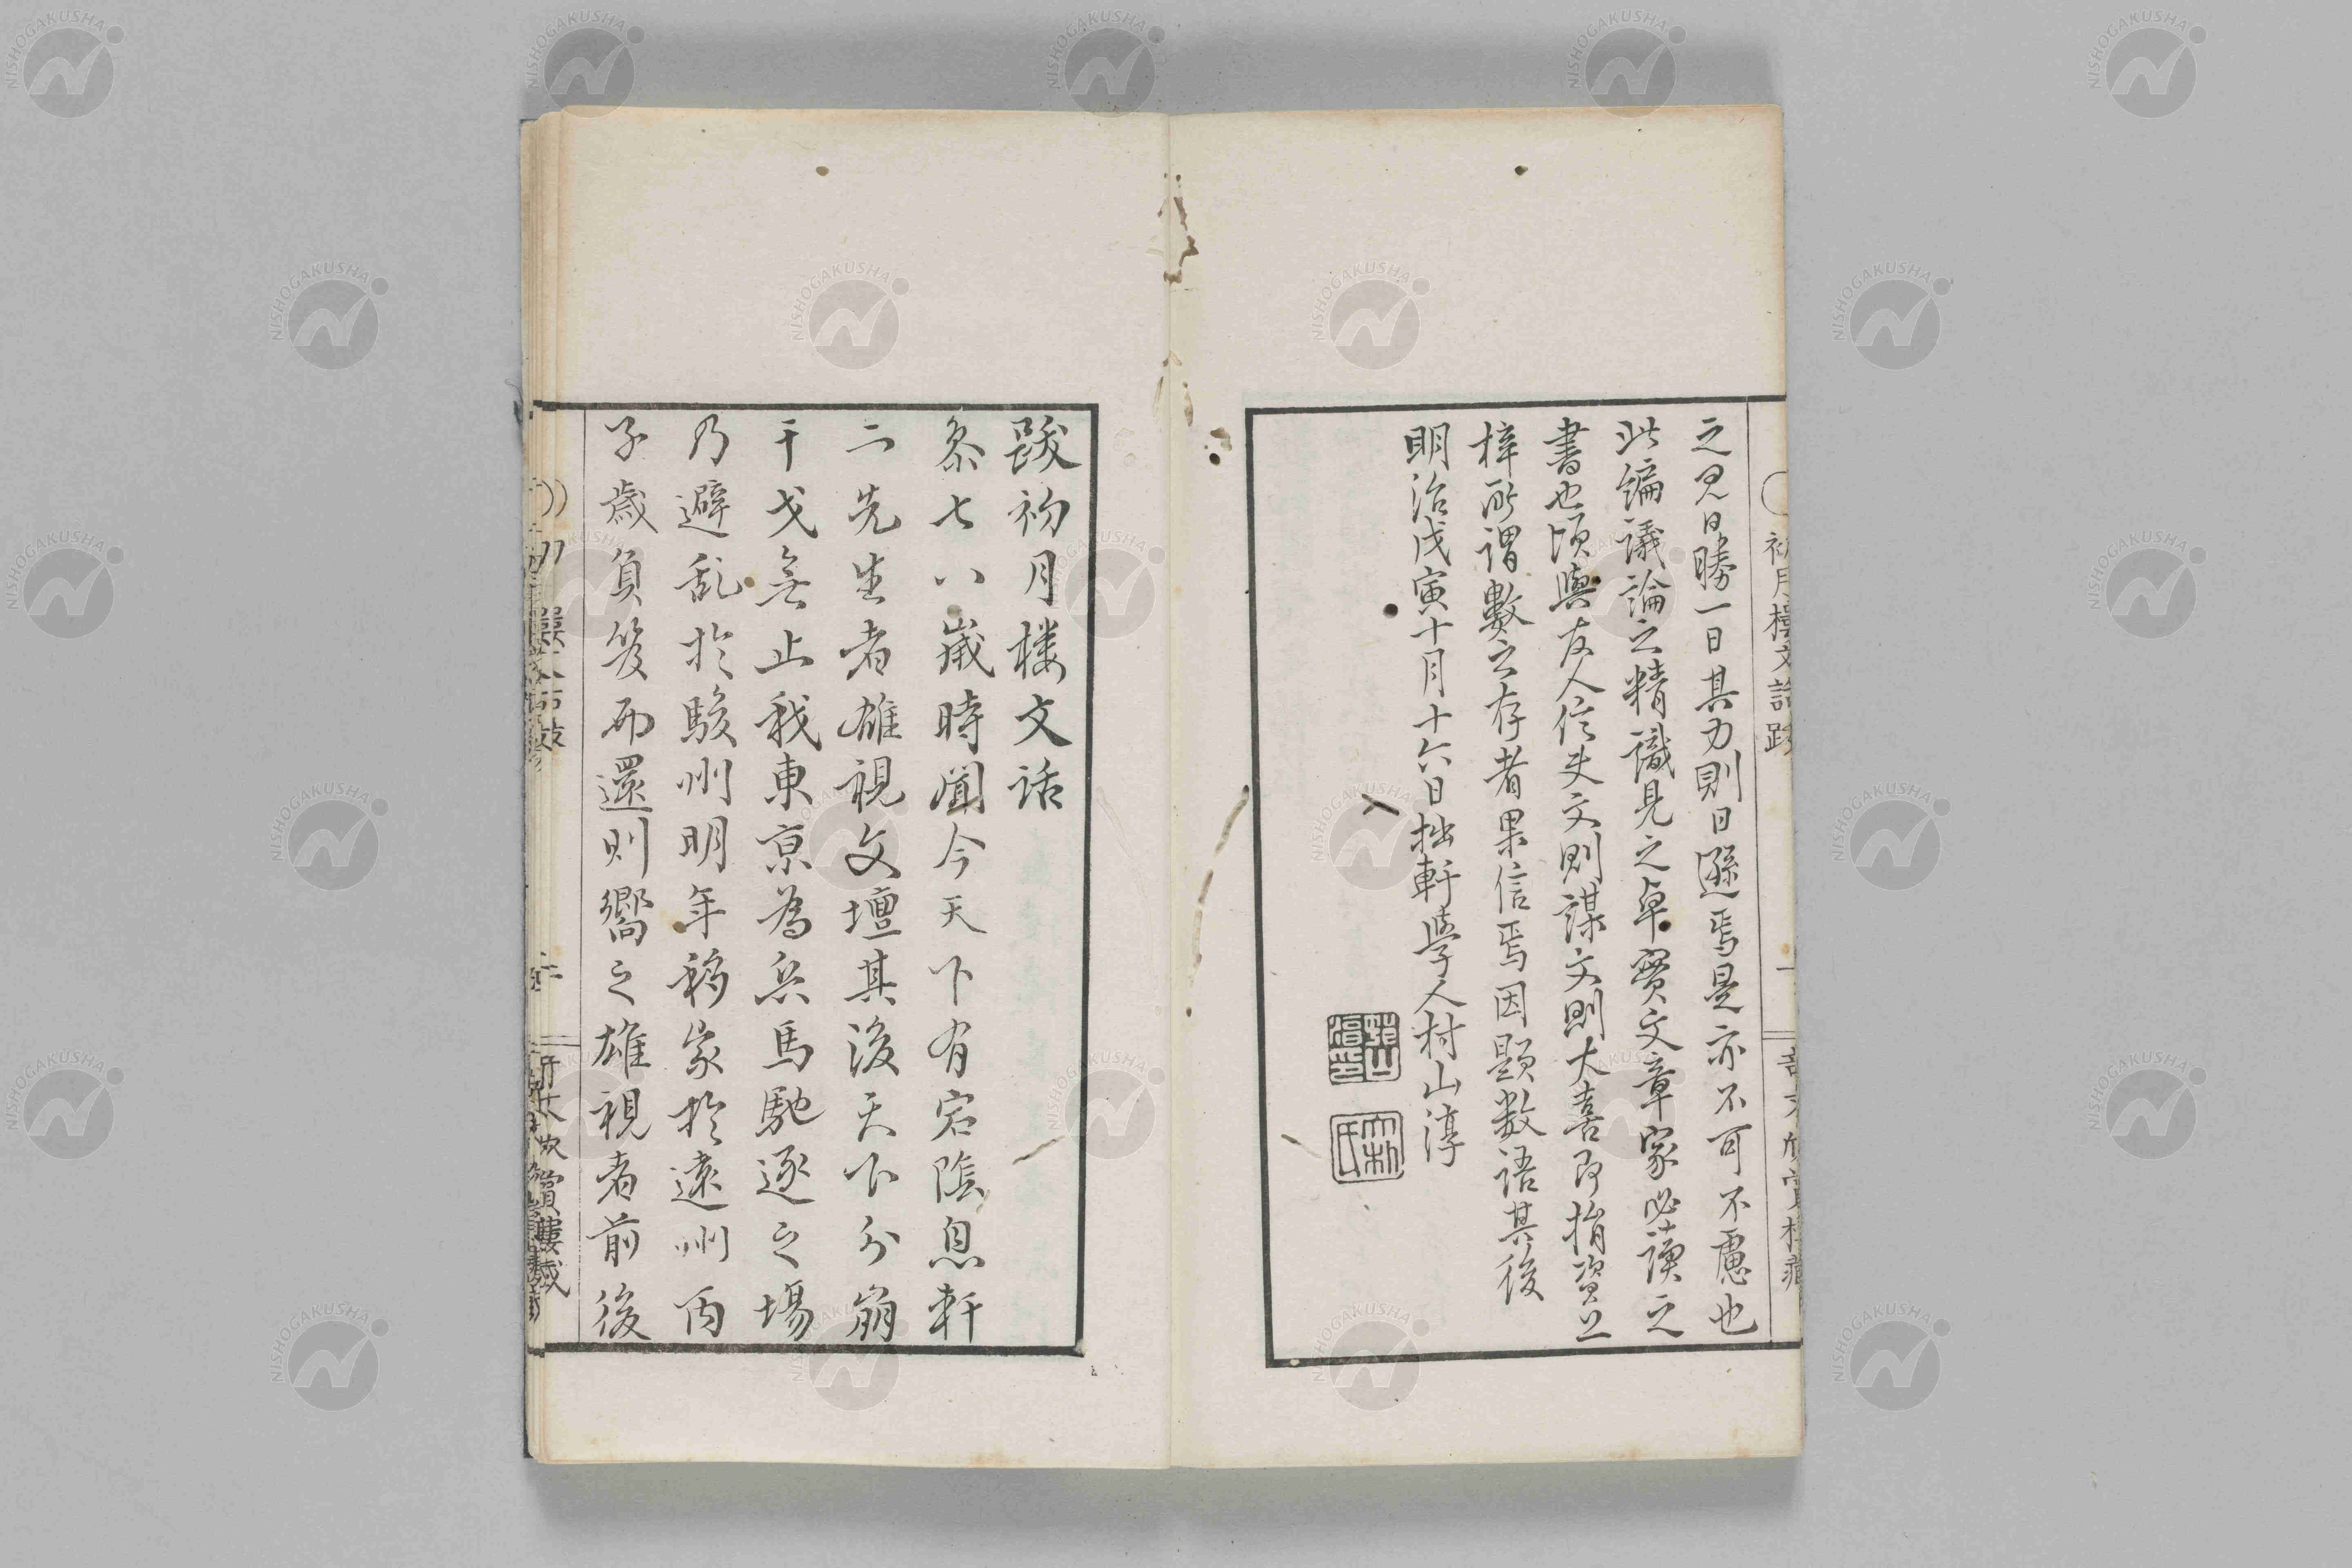 之見日勝一日其力則日遜焉是亦不可不慮也
此編議論之精識見之卓實文章家必讀之
書也頃與友人信夫文則謀文則大喜即捐資上
梓所謂數之存者果信焉因題数語其後
明治戊寅十月十六日拙軒學人村山淳
跋初月楼文話
余七八嵗時聞今天下有宕陰息軒
二先生者雄視文壇其後天下分崩
干戈無止我東京為兵馬馳逐之場
乃避乱於駿州明年移家於遠州丙
子歳負笈而還則嚮之雄視者前後
初月樓文話跋
NISHOGAKUSHA